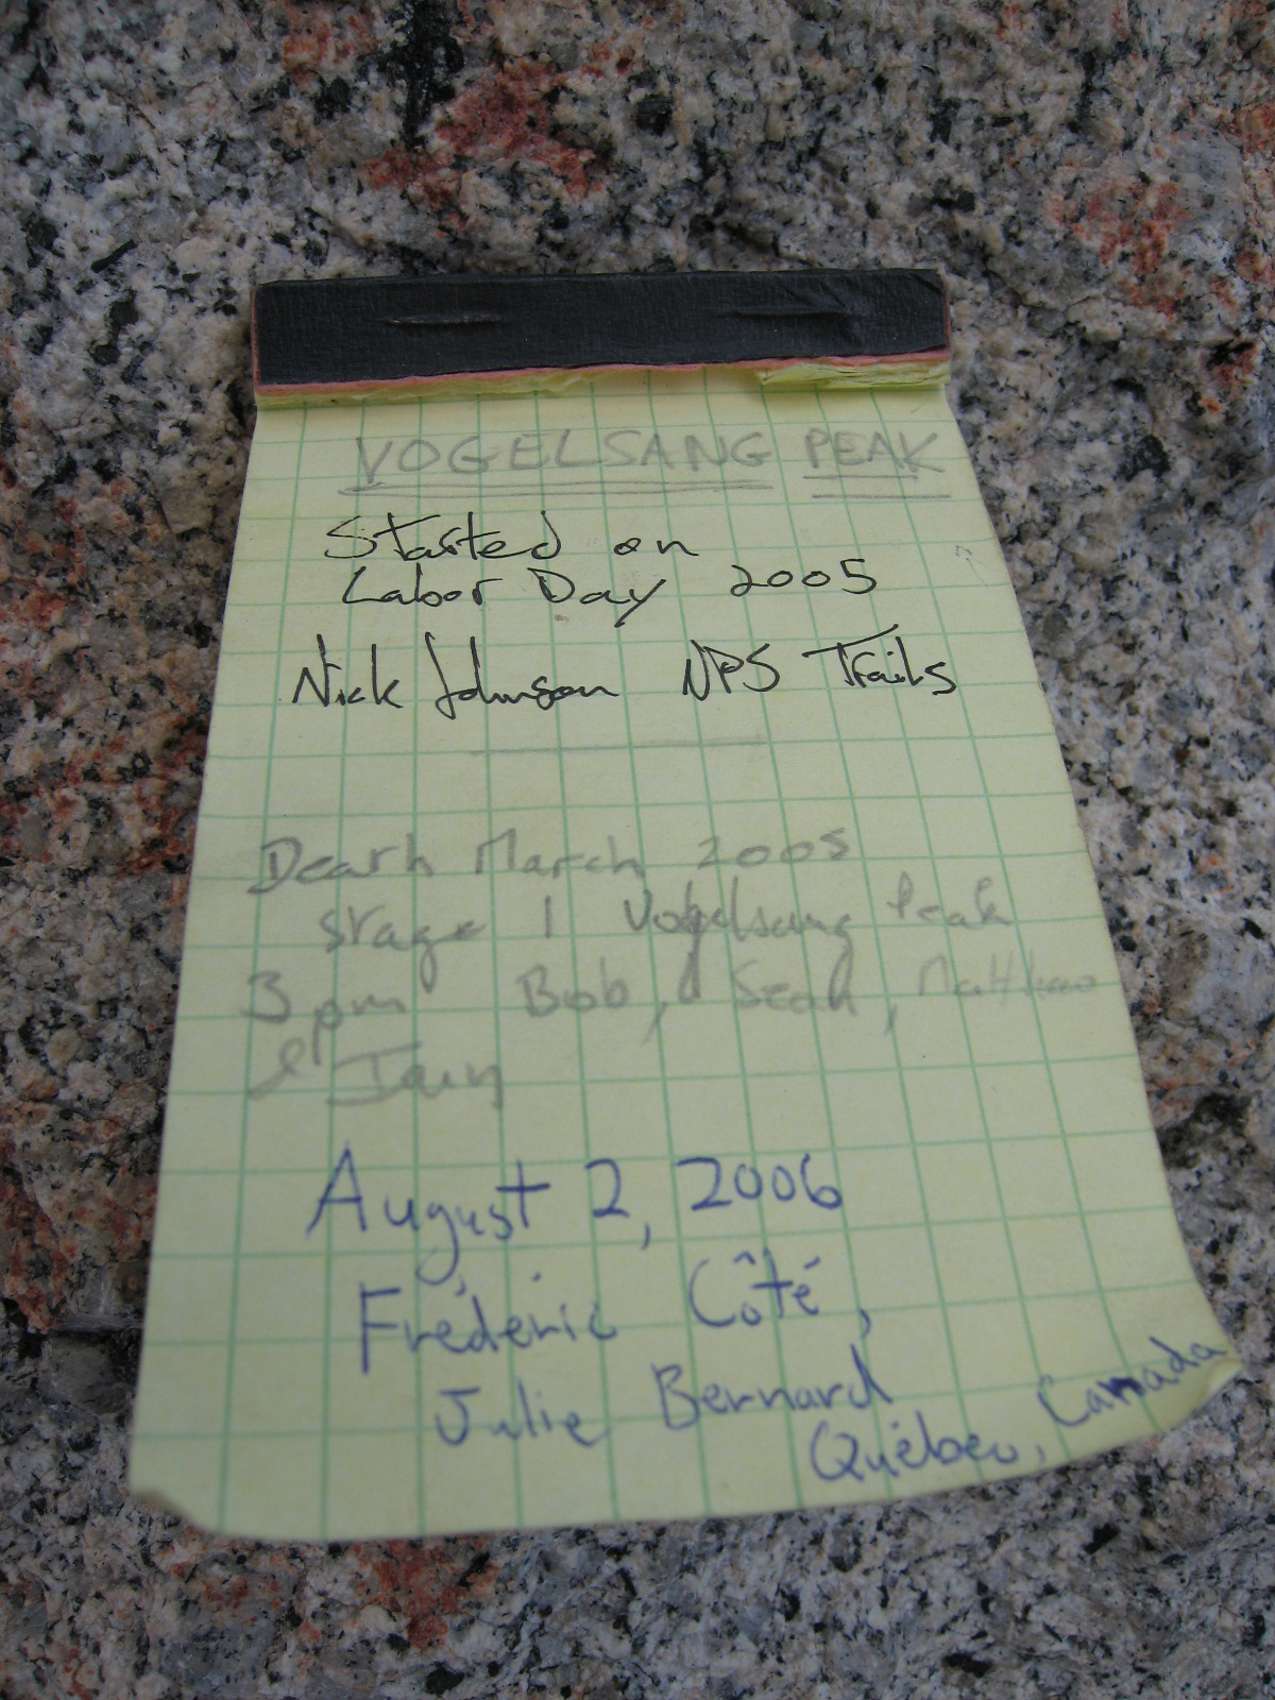 VOGELSANG PEAK
Started on
Labor Day 2005
Nick Johnson NPS Trails
Death March 2005
stage 1 Vogelsang Peak
3pm Bob, Sean, Matthew
& Iain
August 2, 2006
Fréderic Côté,
Julie Bernard
Québec, Canada